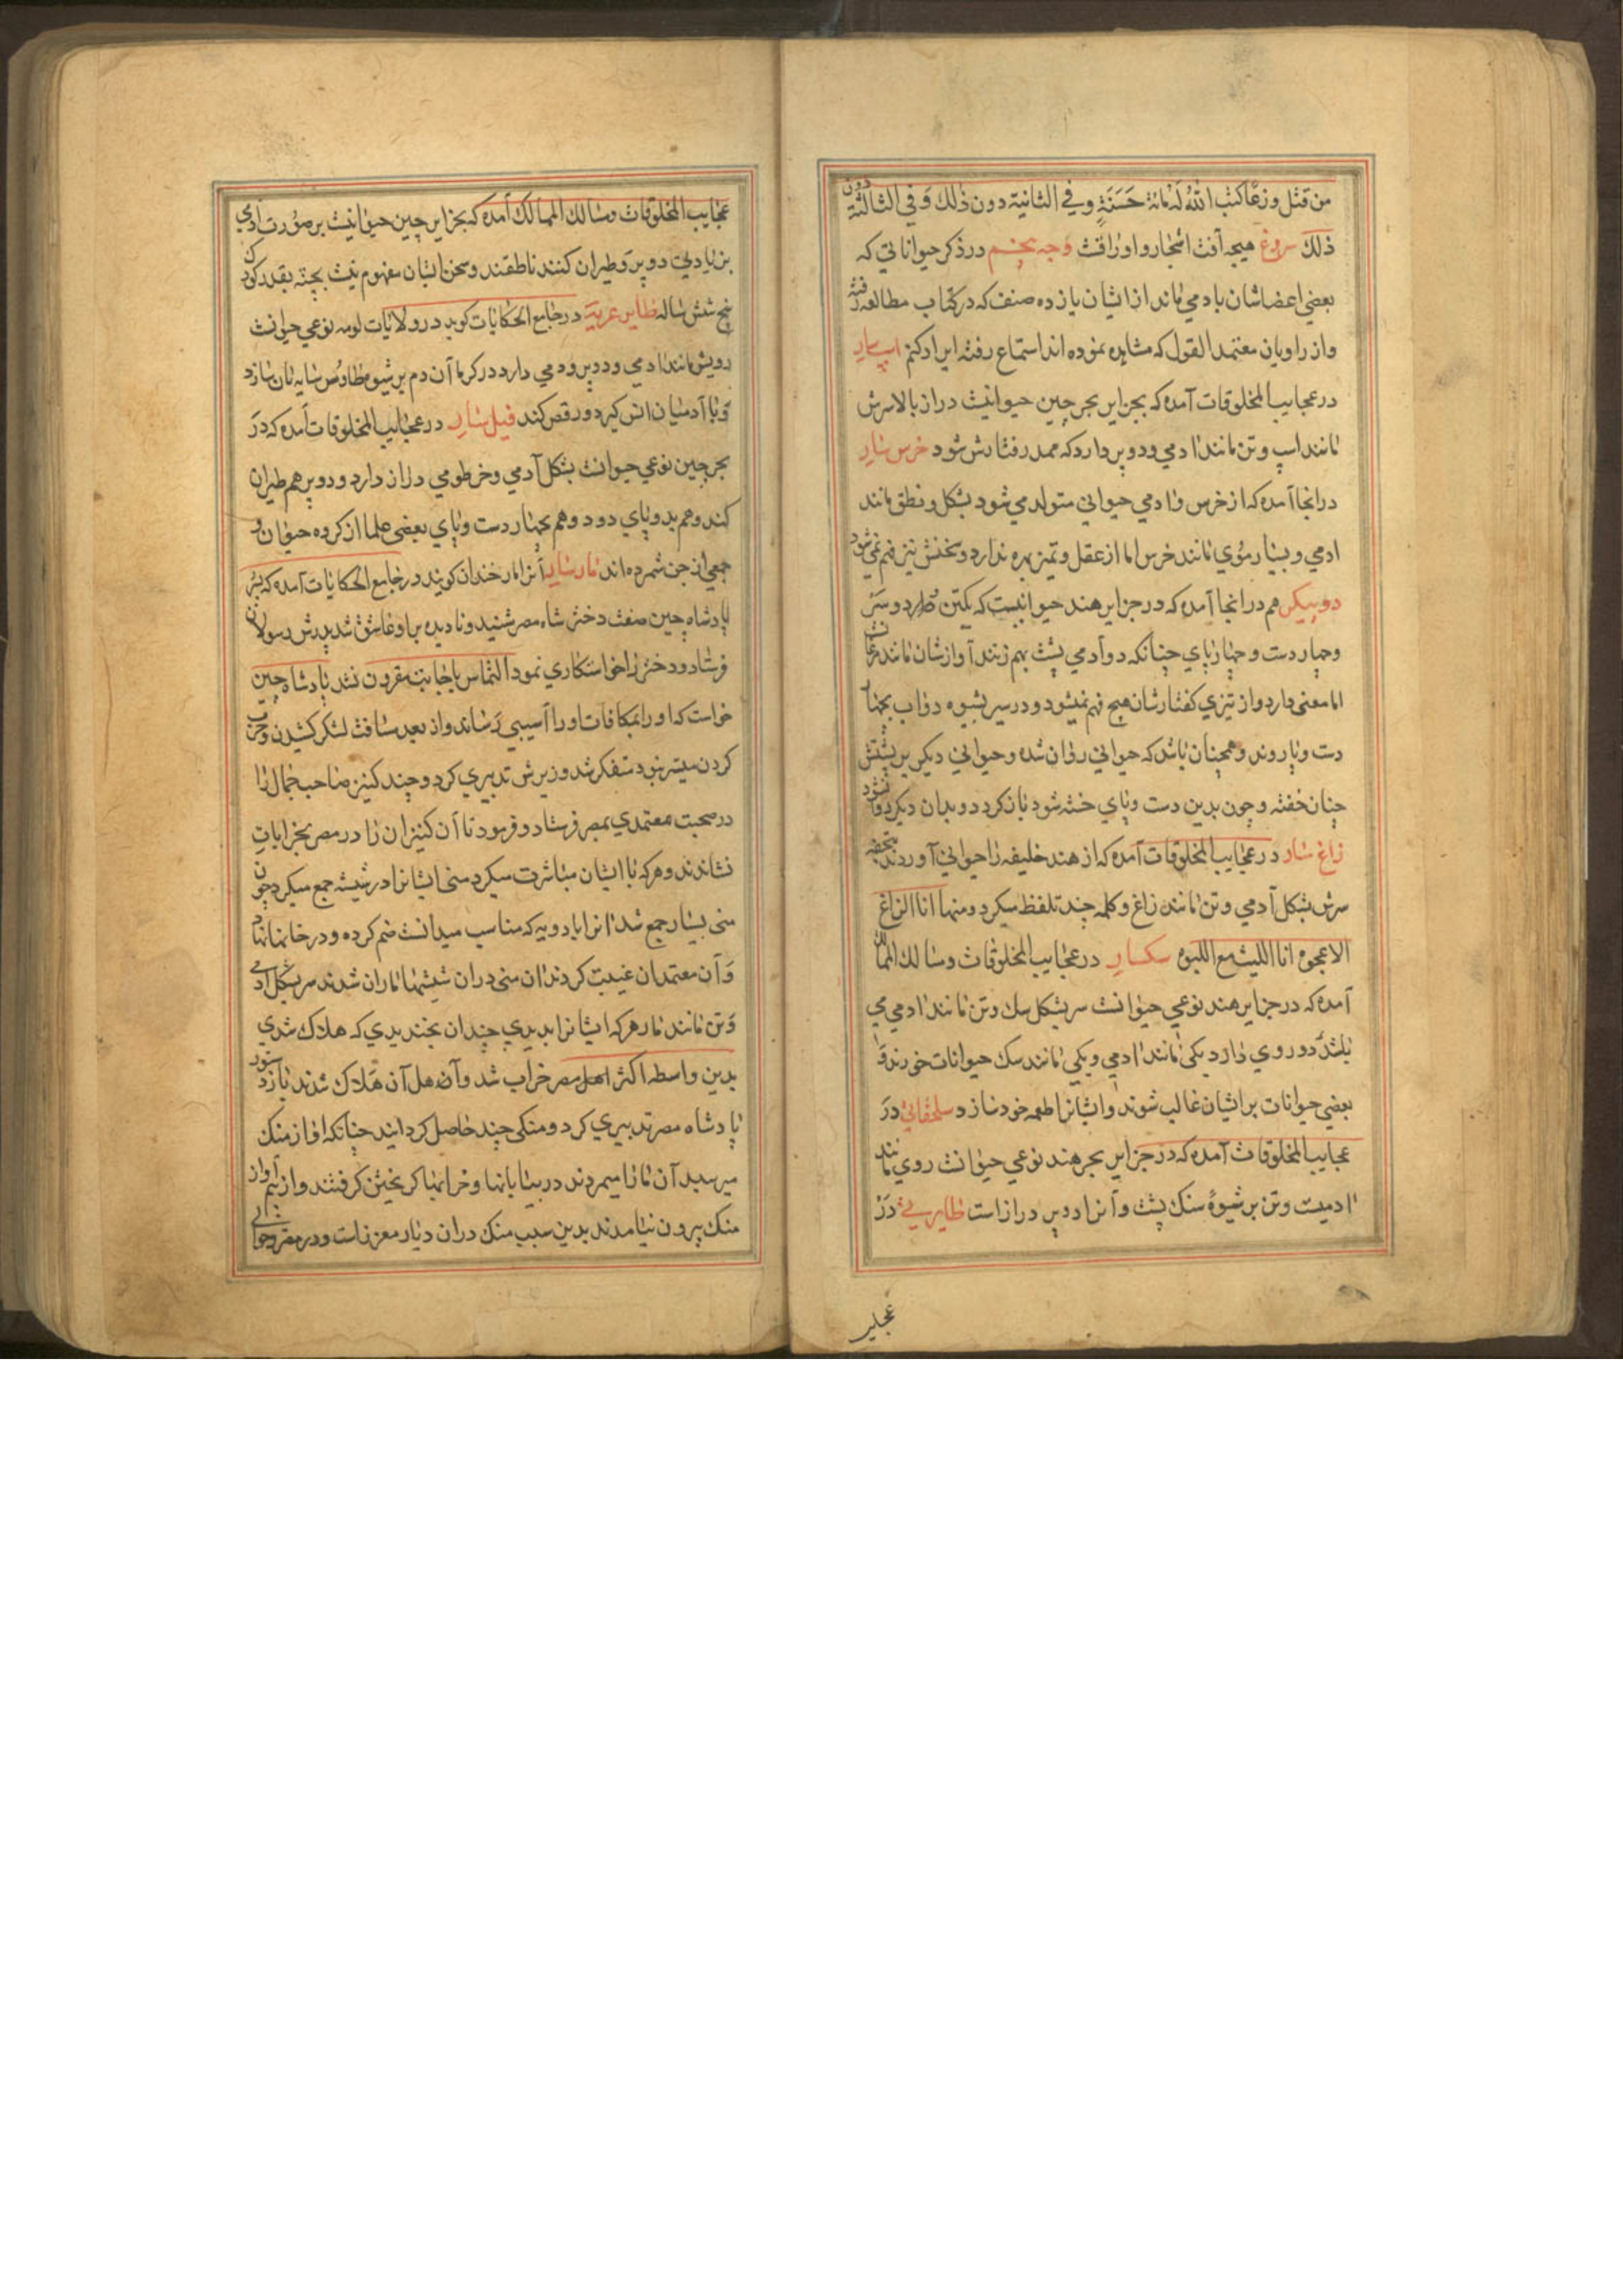 من قتل وزغا کتب الله له مائة حسنة وفي الثانیة دون ذلك وفي الثالثة دون
ذلك سروغ هیجه آفت اشجار و اوراقت وجه پنجم در ذکر حیواناتی که
بعضی اعضاشان بادمی ماند از ایشان یازده صنف که در کتاب مطالعه رفته
و از راویان معتمد القول که مشاهده نموده اند استماع رفته ایراد کنم اسپ سار
در عجایب المخلوقات آمده که بجزایر بحر چین حیوانیست دراز بالا سرش
مانند اسپ و تن مانند ادمی و دو پر دارد که ممد رفتارش شود خرس سار
در انجا آمده که از خرس و ادمی حیوانی متولد می شود بشکل و نطق مانند
ادمی و بسیار موی مانند خرس اما از عقل و تمیز بهره ندارد و سخنش نیز فهم نمی شود
دو پیکر هم در انجا آمده که در جزایر هند حیوانیست که یکتن دارد و دو سر
و چهار دست و چهار پای چنانکه دو آدمی پشت بهم زنند آوازشان مانند مرغانست
اما معنی دارد و از تیزی کفتارشان هیچ فهم نمیشود و در سیر بشیوه دواب بچهار
دست و پا روند و همچنان باشد که حیوانی روان شده و حیوانی دیکر بر پشتش
چنان خفته و چون بدین دست و پای خسته شود باز کردد و بدان دیکر روا نشود
زاغ سار در عجایب المخلوقات آمده که از هند خلیفه را حیوانی آوردند بتحفه
سرش بشکل آدمی و تن مانند زاغ و کلمه چند تلفظ میکرد و منها انا الزاغ
الاعجوه انا اللیث مع اللبوه سکسار در عجایب المخلوقات و مسالك الممالك
آمده که در جزایر هند نوعی حیوانست سر بشکل سك و تن مانند ادمی می
باشد دو روی دارد یکی مانند ادمی و یکی مانند سك حیوانات خورند و
بعضی حیوانات بر ایشان غالب شوند و ایشانرا طعمه خود سازد سلحفاتی در
عجایب المخلوقات آمده که در جزایر بحر هند نوعی حیوانست روی مانند
ادمیست و تن بر شیوه سنك پشت و آنرا دو پر دراز است طایر سی در
عجایب
عجایب المخلوقات و مسالك الممالك آمده که بجزایر چین حیوانیست بر صورت آدمی
بزیادتی دو پر و طیران کنند ناطقند و سخن ایشان مفهوم نیست بجثه بقدر کودك
پنج شش ساله طایر عربیه در جامع الحکایات کوید در ولایات لومه نوعی حیوانست
رویش مانند ادمی و دو پر و دمی دارد در کرما آن دم بر شیوه طاوس سایه بان سازد
و با آدمیان انس کیرد و رقص کند فیل سار در عجایب المخلوقات آمده که در
بحر چین نوعی حیوانست بشکل آدمی و خرطومی دراز دارد و دو پر هم طیران
کند و هم بدو پای دود و هم بچهار دست و پای بعضی علما از کروه حیوان و
جمعی از جن شمرده اند مار سار آنرا مار خندان کویند در جامع الحکایات آمده که پسر
پادشاه چین صفت دختر شاه مصر شنید و نادیده براو عاشق شد پدرش رسولان
فرستاد و دختر را خواستکاری نمود التماس باجابت مقرون نشد پادشاه چین
خواست که او را بمکافات او را آسیبی رساند و از بعد مسافت لشکر کشیدن و حرب
کردن میسر نبود متفکر شد وزیرش تدبیری کرد و چند کنیز صاحب جمال را
در صحبت معتمدی بمصر فرستاد و فرمود تا آن کنیزان را در مصر بخرابات
نشاندند و هر که با ایشان مباشرت میکرد منی ایشانرا در شیشه جمع میکرد چون
منی بسیار جمع شد انرا بادویه که مناسب میدانست ضم کرده و در خانها نهاد
و آن معتمدان غیبت کردند ان منی در ان شیشها ماران شدند سر بشکل ادمی
و تن مانند مار هر که ایشانرا بدیدی چندان بخندیدی که هلاك شدی
بدین واسطه اکثر اهل مصر خراب شد و آن هل آن هلاك شدند باز دستور
پادشاه مصر تدبیری کرد و منکی چند حاصل کردانید چنانکه اواز منك
میرسید آن مارا میمردند در بیابانها و خرابها کریختن کرفتند و از بیم آواز
منك بیرون نیامدند بدین سبب منك در ان دیار معزز است و در مصر و حوالی